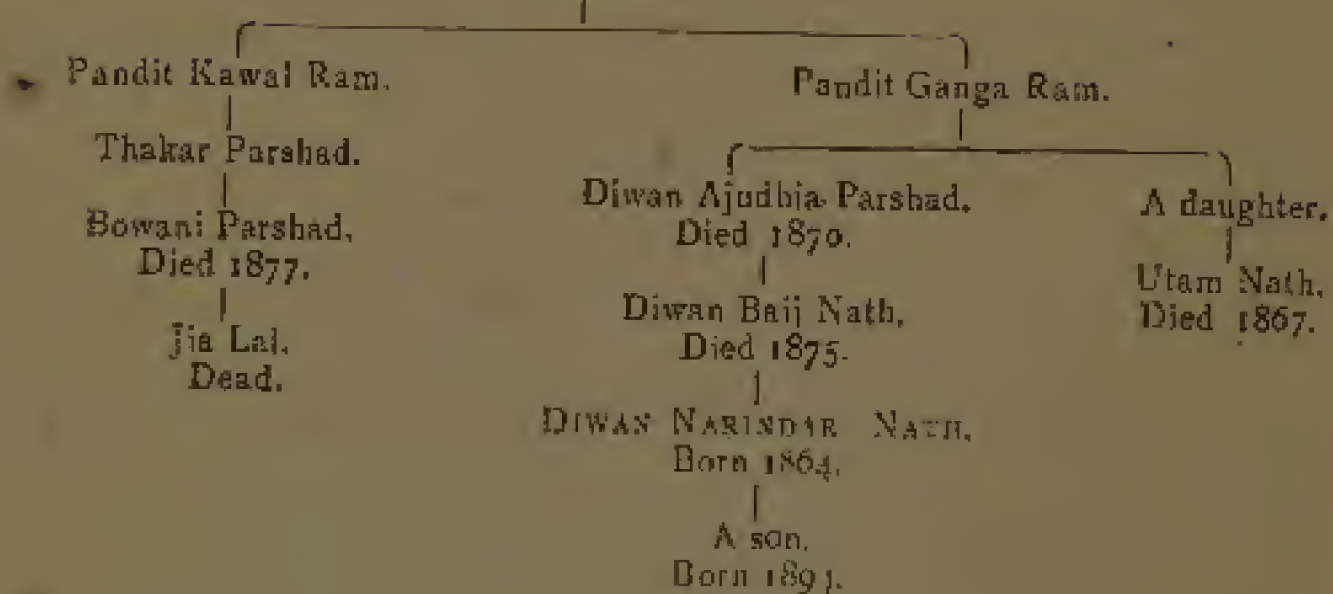 Pandit Kawal Ram.
Thakar Parshad.
Bowani Parshad,
Died 1877.
Jia Lal.
Dead.
Pandit Ganga Ram.
Diwan Ajudhia Parshad.
Died 1870.
Diwan Baij Nath,
Died 1875.
DIWAN NARINDAR NATH.
Born 1864.
A son.
Born
A daughter.
Utam Nath.
Died 1867.